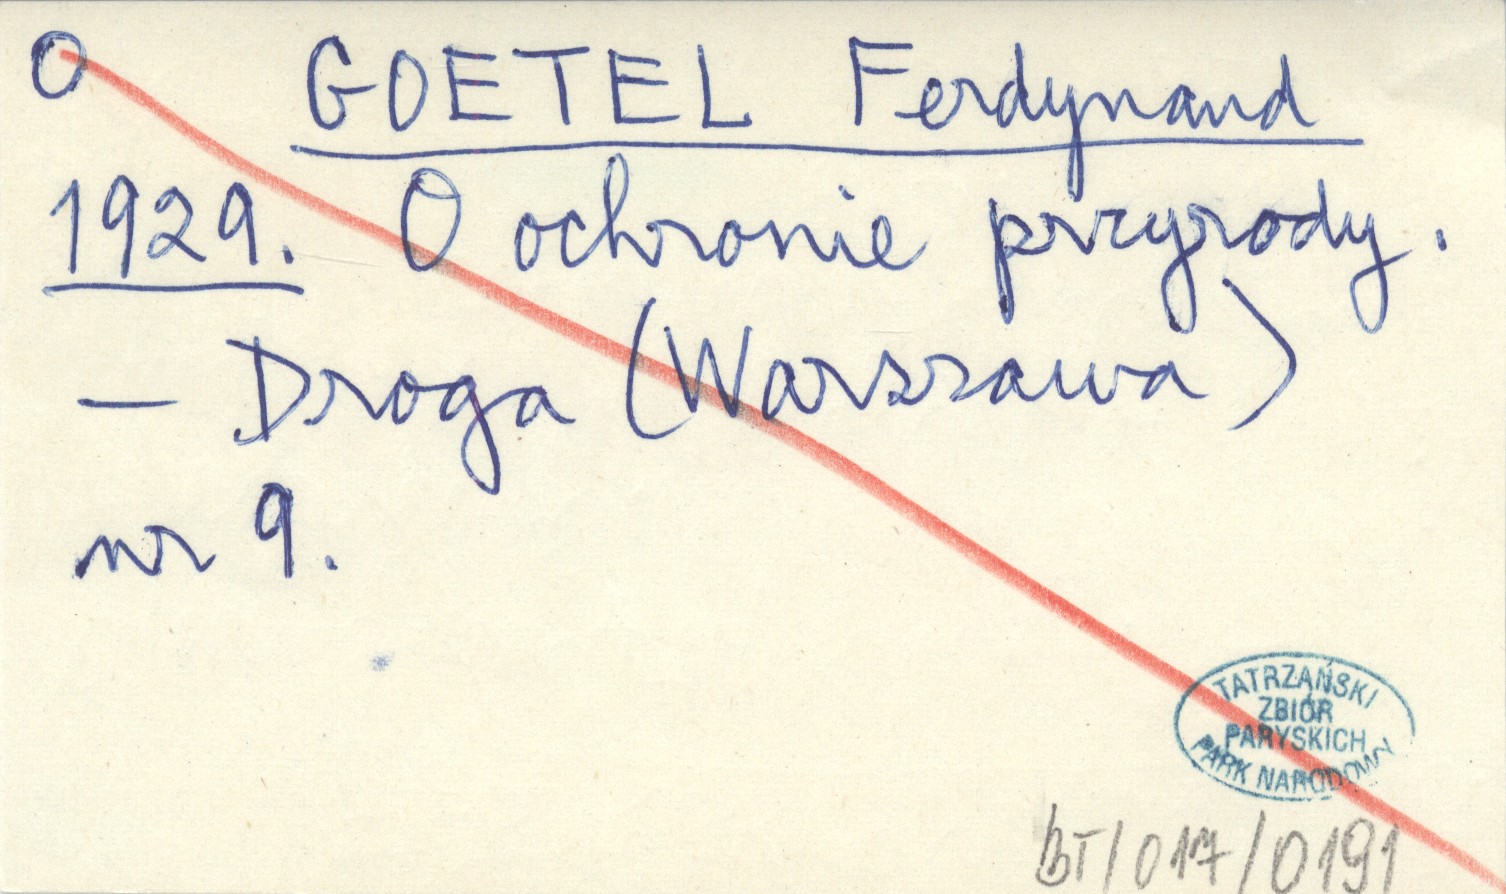 O GOETEL Ferdynand
1929. O ochronie przyrody.
— Droga (Warszawa)
nr 9.
TATRZAŃSKI
ZBIÓR
PARYSKICH
PARK NARODOWY
BT/017/0191